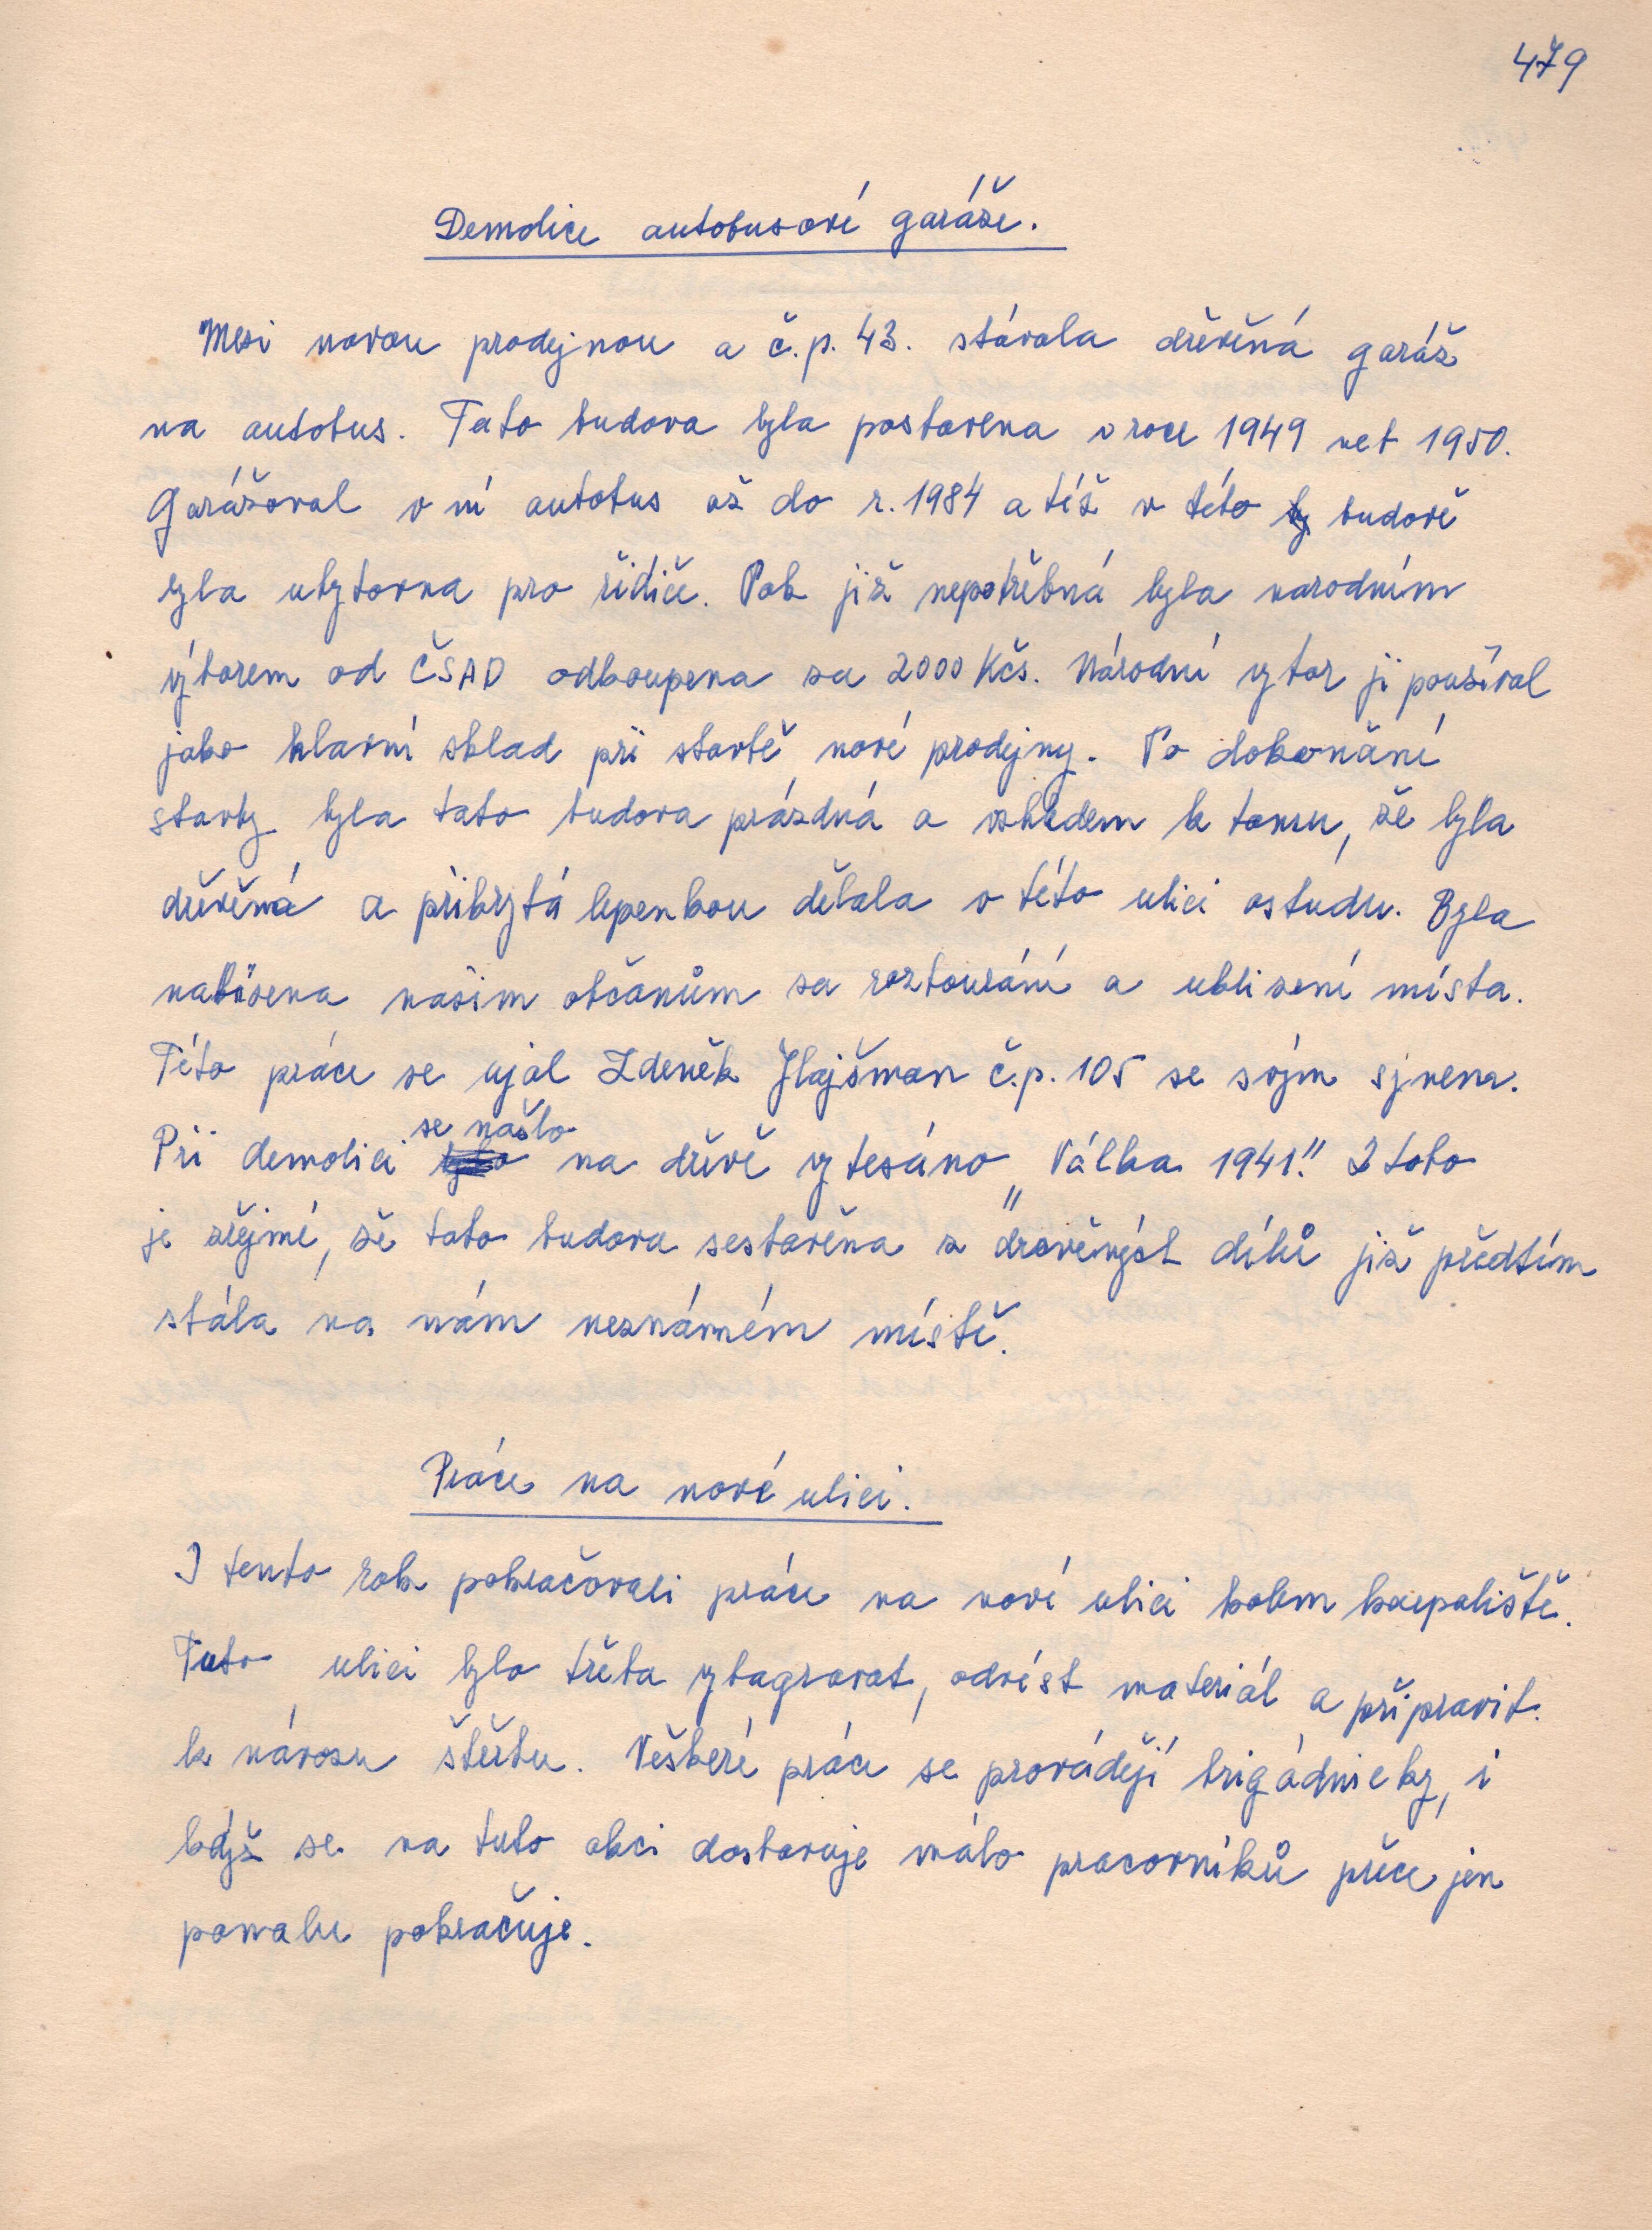 479
Demolice autobusové garáže.
Mezi novou prodejnou a č.p. 43. stávala dřevěná garáž
na autobus. Tato budova byla postavena v roce 1949 neb 1950.
Garážoval v ní autobus až do r. 1984 a též v této by budově
byla ubytovna pro řidiče. Pak již nepotřebná byla narodním
výborem od ČSAD odkoupena za 2000 Kčs. Národní vybor ji použival
jako hlavní sklad při stavbě nové prodejny. Po dokončení
stavby byla tato budova prázdná a vzhledem k tomu, že byla
dřevěná a přikrytá lepenkou dělala v této ulici ostudu. Byla
nabízena našim občanům za rozbourání a uklizení místa.
Této práce se ujal Zdeněk Hajšman č.p. 105 se svým synem.
se našlo
Při demolici bylo na dřevě vytesáno „Válka 1941". Z toho
je zřejmé, že tato budova sestavěna z dřevěných dílů již předtím
stála na nám neznámém místě.
Práce na nové ulici.
I tento rok pokračovali práce na nové ulici kolem koupaliště.
Tuto ulici bylo třeba vybagrovat, odvést materiál a připravit
k návozu štěrku. Veškeré práce se provádějí brigádnicky, i
když se na tuto akci dostavuje málo pracovníků přece jen
pomalu pokračuje.